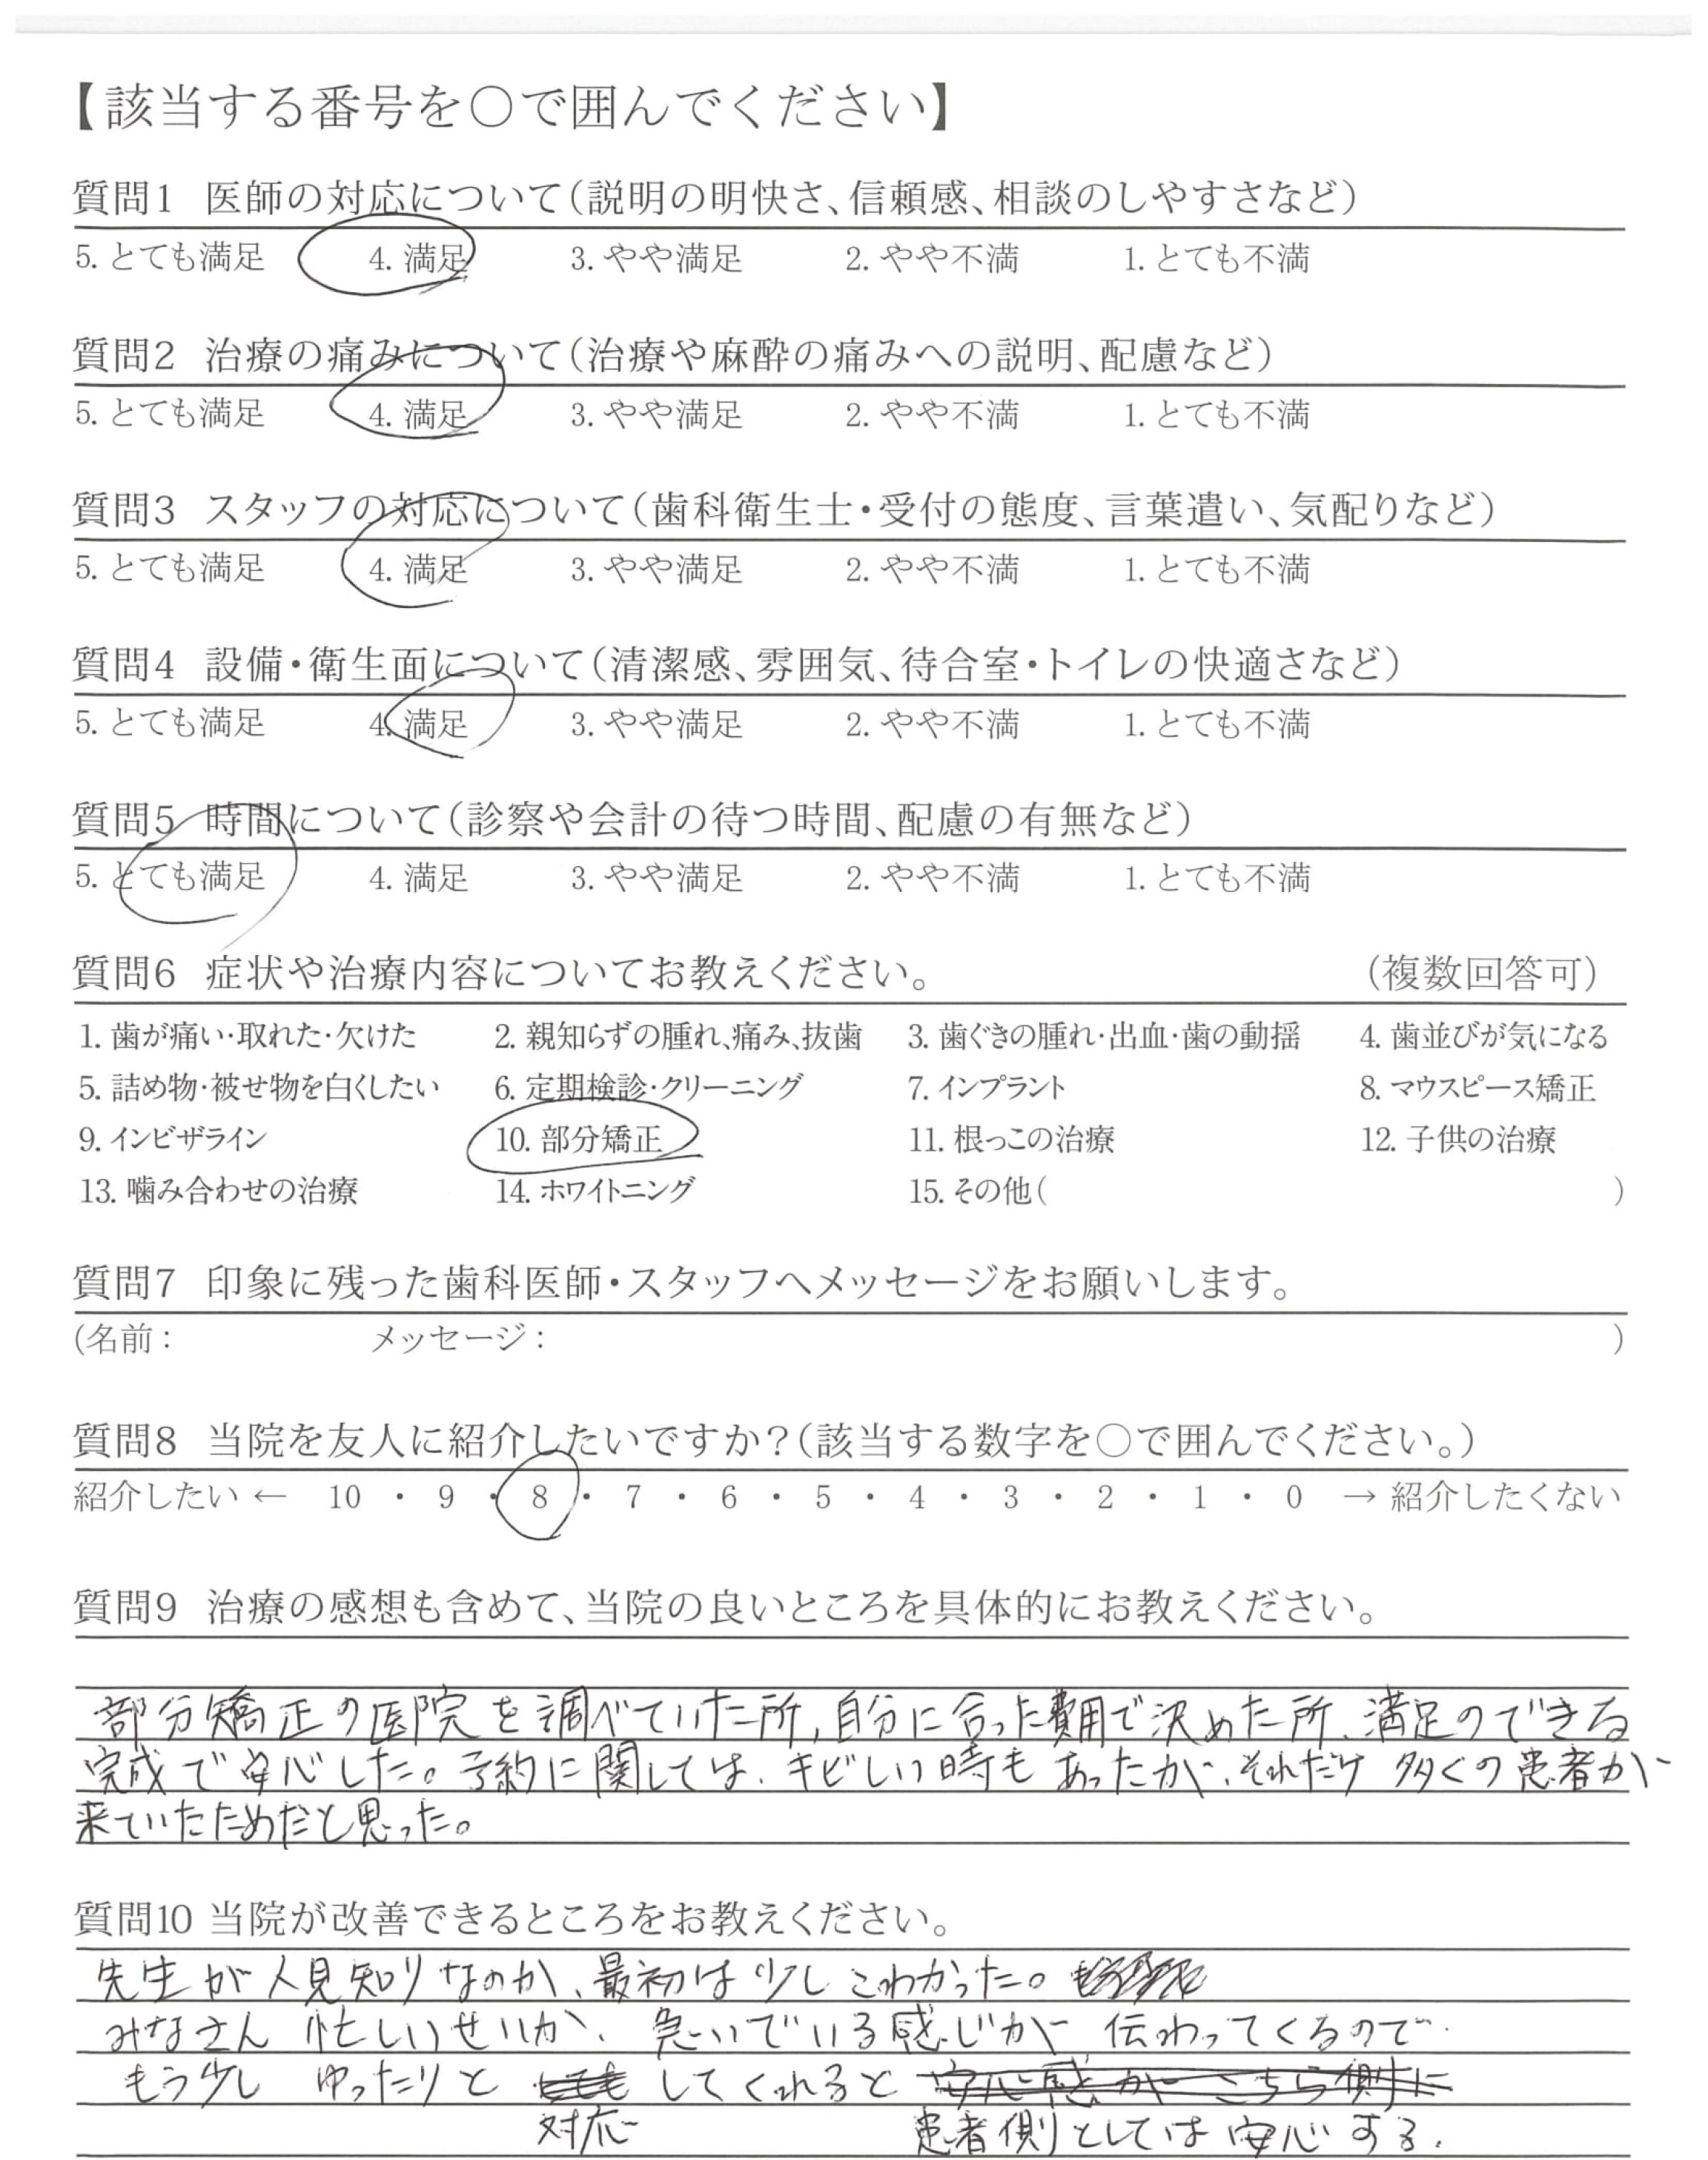 【該当する番号を○で囲んでください】
質問1 医師の対応について(説明の明快さ、信頼感、相談のしやすさなど)
5. とても満足 4. 満足 3. やや満足 2. やや不満 1. とても不満
質問2 治療の痛みについて(治療や麻酔の痛みへの説明、配慮など)
5. とても満足 4. 満足 3. やや満足 2. やや不満 1. とても不満
質問3 スタッフの対応について(歯科衛生士・受付の態度、言葉遣い、気配りなど)
5. とても満足 4. 満足 3. やや満足 2. やや不満 1. とても不満
質問4 設備・衛生面について(清潔感、雰囲気、待合室・トイレの快適さなど)
5. とても満足 4. 満足 3. やや満足 2. やや不満 1. とても不満
質問5 時間について(診察や会計の待つ時間、配慮の有無など)
5. とても満足 4. 満足 3. やや満足 2. やや不満 1. とても不満
質問6 症状や治療内容についてお教えください。 (複数回答可)
1. 歯が痛い・取れた・欠けた 2. 親知らずの腫れ、痛み、抜歯 3. 歯ぐきの腫れ・出血・歯の動揺 4. 歯並びが気になる
5. 詰め物・被せ物を白くしたい 6. 定期検診・クリーニング 7. インプラント 8. マウスピース矯正
9. インビザライン 10. 部分矯正 11. 根っこの治療 12. 子供の治療
13. 噛み合わせの治療 14. ホワイトニング 15. その他( )
質問7 印象に残った歯科医師・スタッフへメッセージをお願いします。
(名前: メッセージ: )
質問8 当院を友人に紹介したいですか?(該当する数字を○で囲んでください。)
紹介したい ← 10 ・ 9 ・ 8 ・ 7 ・ 6 ・ 5 ・ 4 ・ 3 ・ 2 ・ 1 ・ 0 → 紹介したくない
質問9 治療の感想も含めて、当院の良いところを具体的にお教えください。
部分矯正の医院を調べていた所、自分に合った費用で決めた所、満足のできる
完成で安心した。予約に関しては、キビしい時もあったが、それだけ多くの患者が
来ていたためだと思った。
質問10 当院が改善できるところをお教えください。
先生が人見知りなのか、最初は少しこわかった。
みなさん忙しいせいか、急いでいる感じが伝わってくるので
もう少し ゆったりと してくれると 安心感がこちら側に
対応 患者側としては安心する。